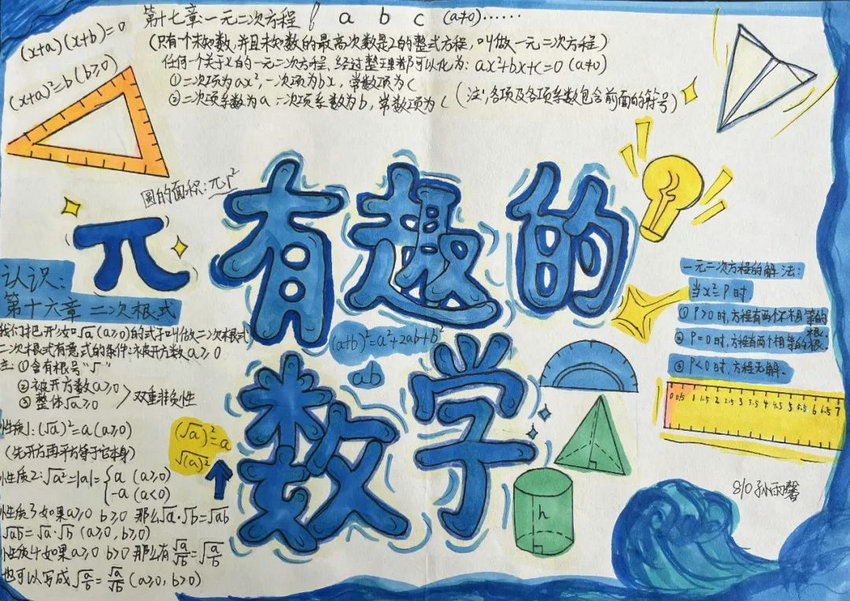 第十七章一元二次方程 a b c (a≠0)……
(只有个未知数,并且未知数的最高次数是2的整式方程,叫做一元二次方程)
任何一个关于x的一元二次方程,经过整理都可以化为:ax²+bx+c=0(a≠0)
①二次项为ax²,一次项为bx,常数项为c
②二次项系数为a 一次项系数为b,常数项为c (注:各项及各项系数包含前面的符号)
(x+a)(x+b)=0
(x+a)²=b(b≥0)
圆的面积:πr²
π
有趣的
数学
(a+b)²=a²+2ab+b²
ab
认识:
第十六章 二次根式
我们把形如√a(a≥0)的式子叫做二次根式
二次根式有意义的条件:被开方数a≥0
注:①含有根号"√"
②被开方数a≥0
③整体√a≥0
双重非负性
性质1:(√a)²=a(a≥0)
(先开方再平方等于它本身)
性质2:√a²=|a|={a (a≥0)
-a (a<0)
性质3如果a≥0 b≥0 那么√a·√b=√ab
√ab=√a·√b (a≥0,b≥0)
性质4如果a≥0 b>0 那么有√a/√b=√(a/b)
也可以写成√(a/b)=√a/√b (a≥0,b>0)
(√a)²=a
√(a)²
一元二次方程的解法:
当x²=P时
①P>0时,方程有两个不相等的根
②P=0时,方程有两个相等的根
③P<0时,方程无解.
0 0.5 1 1.5 2 2.5 3 3.5 4 4.5 5 5.5 6 6.5 7
h
810 孙雨馨